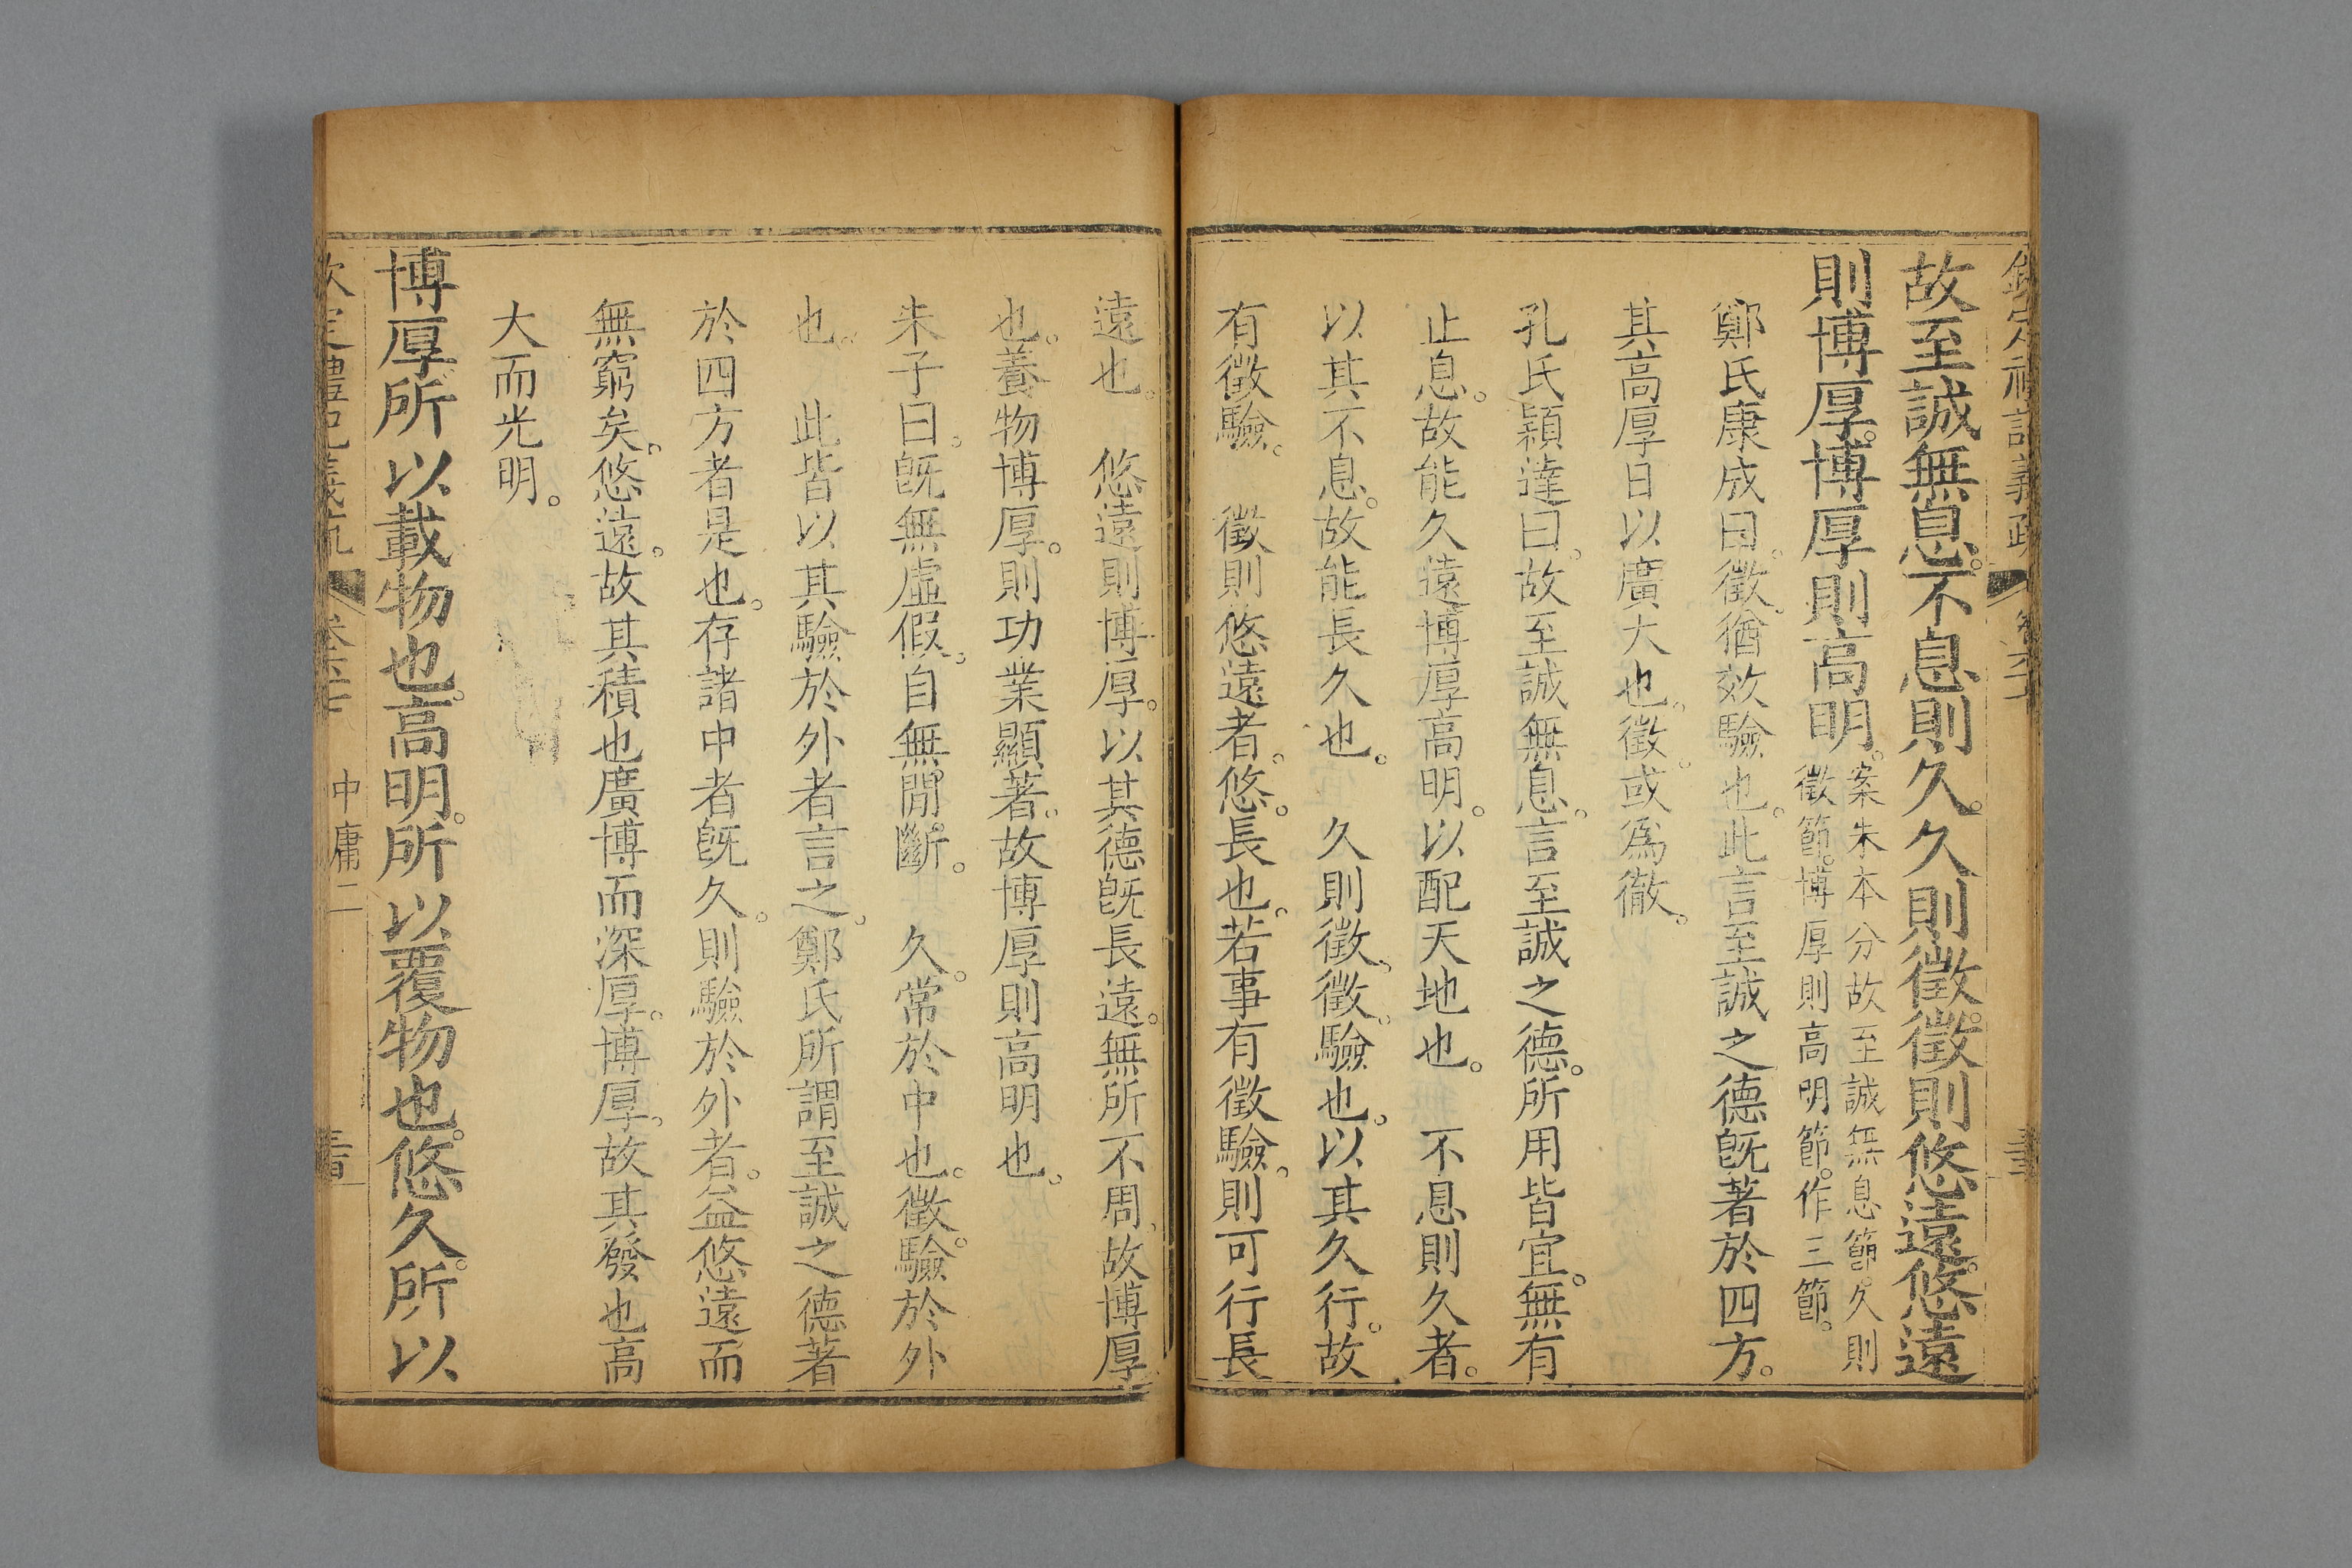 故至誠無息。不息則久。久則徵徵。則悠遠。悠遠
則博厚。博厚則高明。
案朱本分故至誠無息節。久則
徵節。博厚則高明節。作三節。
鄭氏康成曰。徵。猶效驗也。此言至誠之德旣著於四方。
其高厚日以廣大也。徵。或爲徹。
孔氏穎達曰。故至誠無息。言至誠之德。所用皆宜。無有
止息。故能久遠博厚高明。以配天地也。 不息則久者。
以其不息。故能長久也。 久則徵。徵。驗也。以其久行。故
有徵驗。 徵則悠遠者。悠。長也。若事有徵驗。則可行長
遠也。 悠遠則博厚。以其德旣長遠。無所不周。故博厚
也。養物博厚。則功業顯著。故博厚則高明也。
朱子曰。旣無虛假。自無閒斷。 久。常於中也。徵。驗於外
也。 此皆以其驗於外者言之。鄭氏所謂至誠之德著
於四方者是也。存諸中者旣久。則驗於外者。益悠遠而
無窮矣。悠遠。故其積也廣博而深厚。博厚。故其發也高
大而光明。
博厚所以載物也。高明。所以覆物也。悠久。所以
中庸二